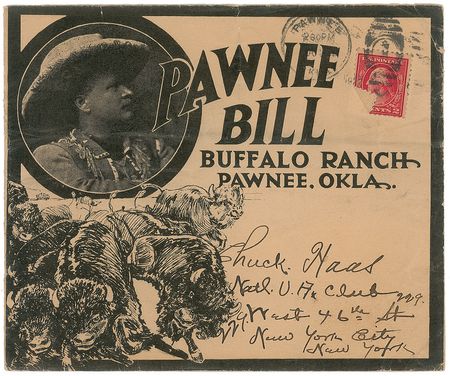 PAWNEE
BILL
BUFFALO RANCH
PAWNEE. OKLA.
PAWNEE
230PM
U.S. POSTAGE
CENTS 2
Chuck Haas
Natl. V.A. Club
229 West 46th St
New York City
New York